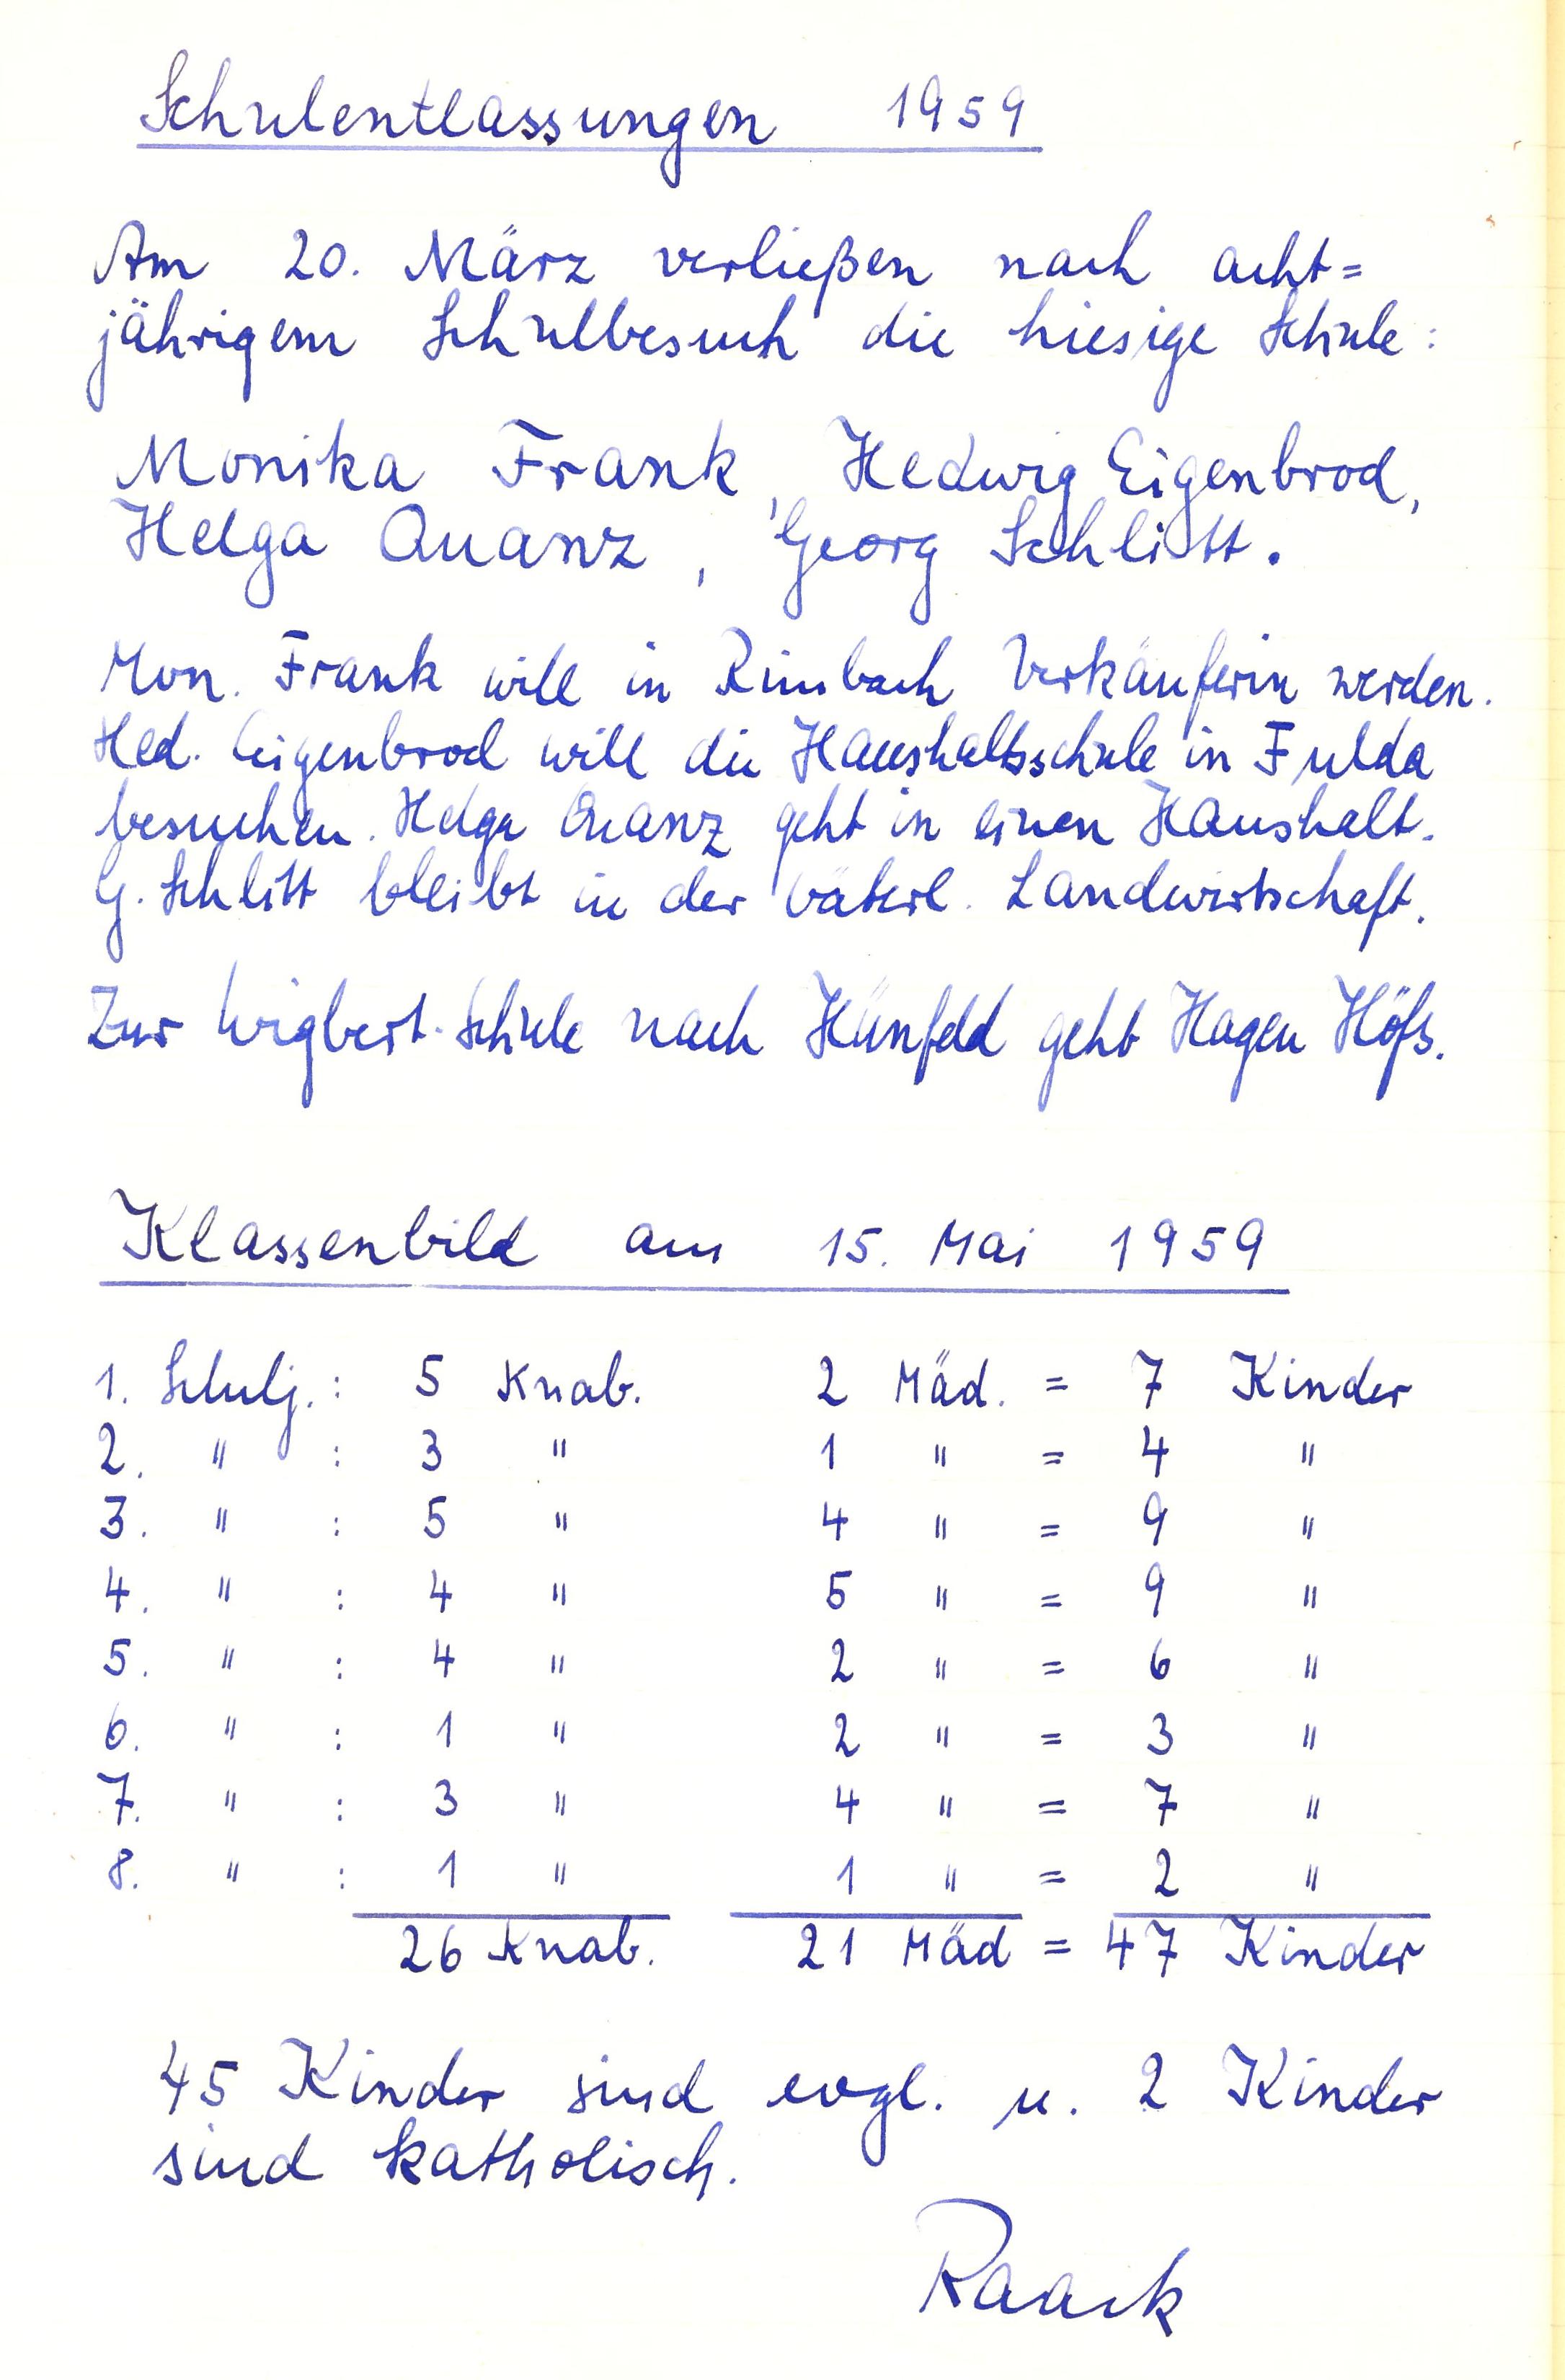 Schulentlassungen 1959
Am 20. März verließen nach acht=
jährigem Schulbesuch die hiesige Schule:
Monika Frank, Hedwig Eigenbrod,
Helga Quanz, Georg Schlitt.
Mon. Frank will in Rimbach Verkäuferin werden.
Hed. Eigenbrod will die Haushaltsschule in Fulda
besuchen. Helga Quanz geht in einen Haushalt.
G. Schlitt bleibt in der väterl. Landwirtschaft.
Zur Wigbert-Schule nach Hünfeld geht Hagen Höfs.
Klassenbild am 15. Mai 1959
1. Schulj.: 5 Knab. 2 Mäd. = 7 Kinder
2. " : 3 " 1 " = 4 "
3. " : 5 " 4 " = 9 "
4. " : 4 " 5 " = 9 "
5. " : 4 " 2 " = 6 "
6. " : 1 " 2 " = 3 "
7. " : 3 " 4 " = 7 "
8. " : 1 " 1 " = 2 "
26 Knab. 21 Mäd = 47 Kinder
45 Kinder sind evgl. u. 2 Kinder
sind katholisch.
Raack